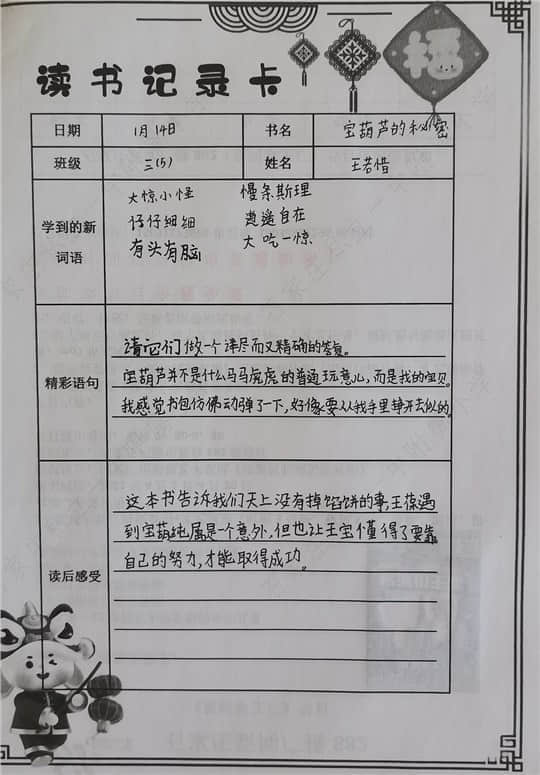 福
读书记录卡
日期 1月14日 书名 宝葫芦的秘密
班级 三(5) 姓名 王若惜
学到的新词语
大惊小怪 慢条斯理
仔仔细细 逍遥自在
有头有脑 大吃一惊
精彩语句
请它们做一个详尽而又精确的答复。
宝葫芦并不是什么马马虎虎的普通玩意儿,而是我的宝贝。
我感觉书包仿佛动弹了一下,好像要从我手里挣开去似的。
读后感受
这本书告诉我们天上没有掉馅饼的事,王葆遇
到宝葫纯属是个意外,但也让王宝懂得了要靠
自己的努力,才能取得成功。